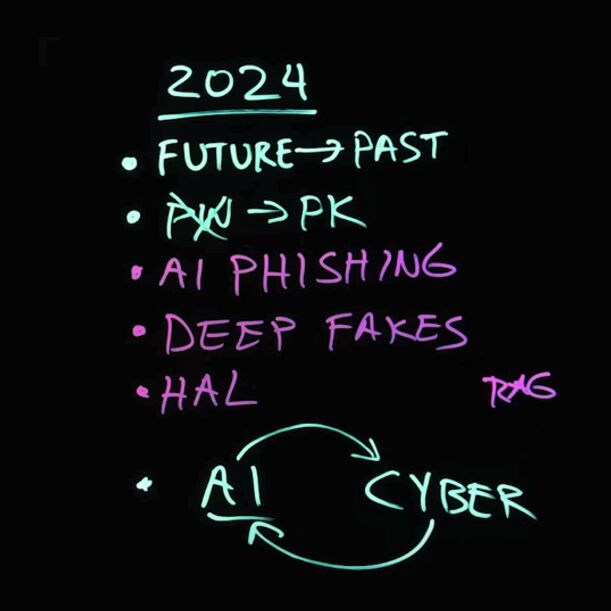 2024
• FUTURE → PAST
• PW → PK
• AI PHISHING
• DEEP FAKES
• HAL RAG
• AI CYBER